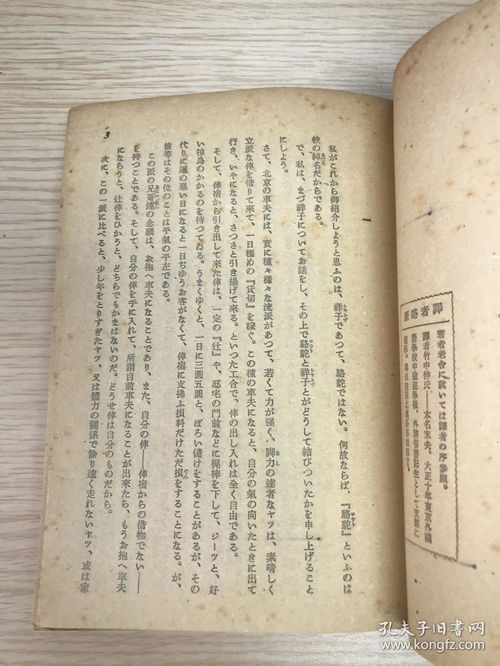 譯者略歷
著者老舍に就いては譯者の序參照。
譯者竹中伸氏――本名末央、大正十年東京外國
語學校
一
私がこれから御紹介しようと思ふのは、祥子であつて、駱駝ではない。何故ならば、『駱駝』といふのは
彼の綽名だからである。
で、私は、まづ祥子についてお話をし、その上で駱駝と祥子とがどうして結びついたかを申し上げること
にしよう。
さて、北京の車夫には、實に種々樣々な流派があつて、若くて力が强く、脚力の達者なヤツは、素晴しく
立派な俥を借りて來て、一日極めの『貸切』を稼ぐ。この種の車夫になると、自分の氣の向いたときに出て
行き、いやになると、さつさと引き揚げて來る。といつた工合で、俥の出し入れは全く自由である。
そして、俥宿から引き出して來た俥は、一定の『辻』や、邸宅の門前などに梶棒を下して、ジーッと、好
い椋鳥のかかるのを待つてゐる。うまくゆくと、一日に三圓五圓と、ぼろい儲けをすることがあるが、その
代りに運の惡い日になると一日ぢゆうお客がなくて、俥宿に支拂ふ損料だけただ損をすることになる。が、
彼等はその位のことは平氣の平左である。
この派の兄哥達の念願は、お抱へ車夫になることであり、また、自分の俥――俥宿からの借物でない――
を持つことである。そして、自分の俥を手に入れて、所謂自前車夫になることが出來たら、もうお抱へ車夫
にならうと、辻俥をひかうと、どちらでもかまはないのだ。どうせ俥は自分のものだから。
次に、この一派に比べると、少し年をとりすぎたヤツ、又は體力の關係で餘り速く走れないヤツ、或は家
孔夫子旧书网
www.kongfz.com